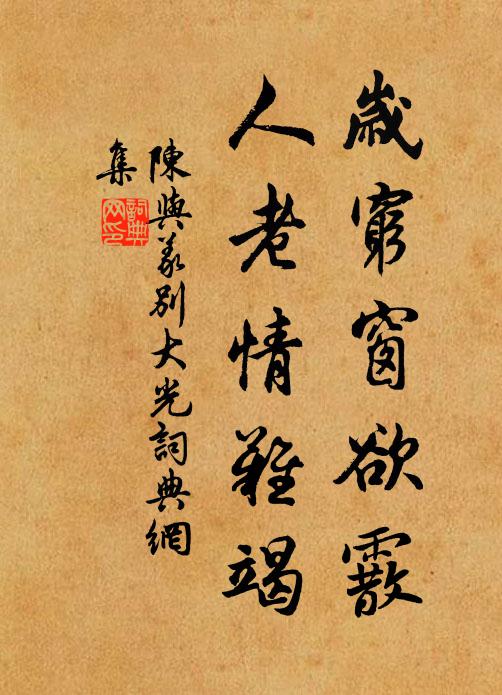 歲窮窗欲霰
人老情難竭
陳與義別大光詞典網
集
詞典
网印